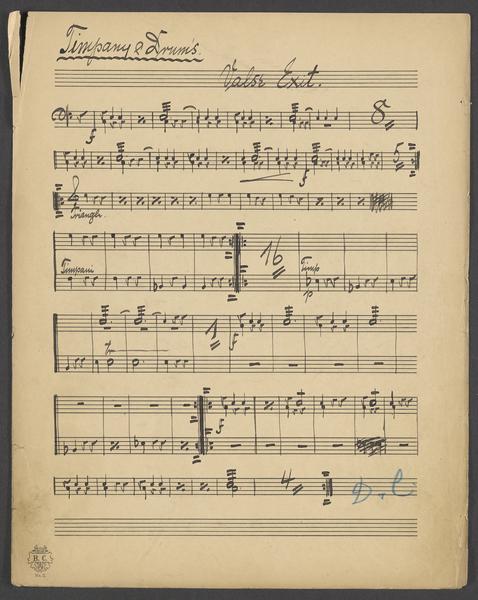 Timpany & Drums.
Valse Exit.
f
8
f
5
Triangl.
Timpani
16
Timp
p
tr
1
f
f
4
D. C
B. C.
No. 2